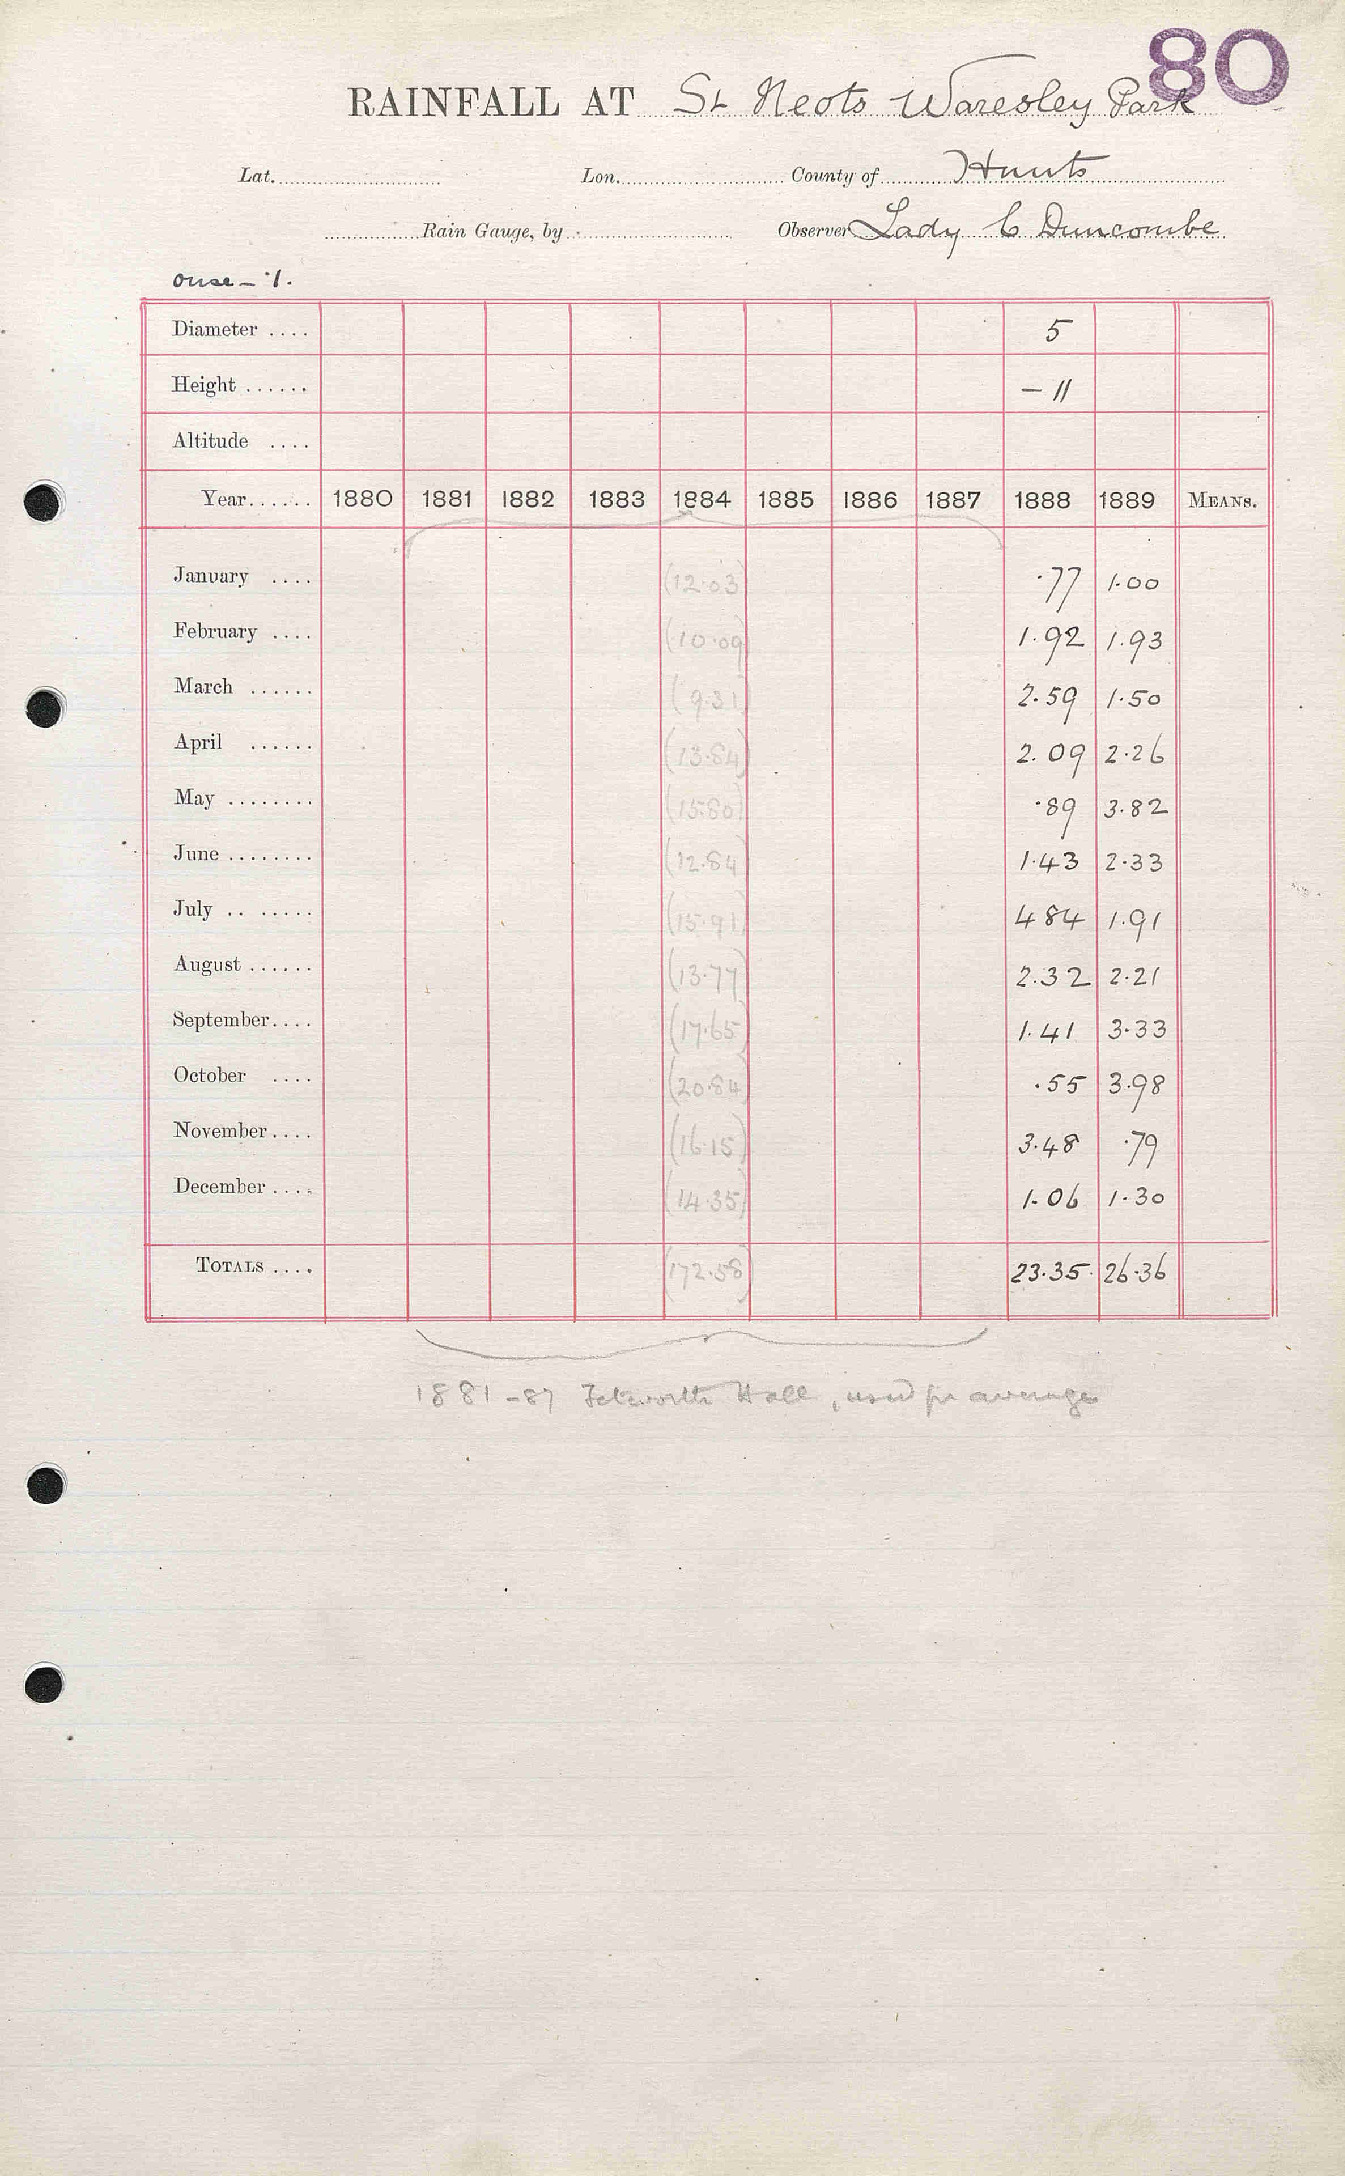 80
RAINFALL AT St Neots Waresley Park
Lat. Lon. County of Hunts
Rain Gauge, by Observer Lady C Duncombe
Ouse – ·1.
Diameter .... 5
Height ...... – 11
Altitude ....
Year...... 1880 1881 1882 1883 1884 1885 1886 1887 1888 1889 MEANS.
January .... (12.03) ·77 1.00
February .... (10.09) 1.92 1.93
March ...... (9.31) 2.59 1.50
April ...... (13.84) 2.09 2.26
May ........ (15.80) ·89 3.82
June ........ (12.84) 1.43 2.33
July .. ..... (15.91) 4 84 1.91
August ...... (13.77) 2.32 2.21
September.... (17.65) 1.41 3.33
October .... (20.84) .55 3.98
November.... (16.15) 3.48 .79
December .... (14.35) 1.06 1.30
TOTALS .... (172.58) 23.35 26.36
1881–87 Hall, used for average